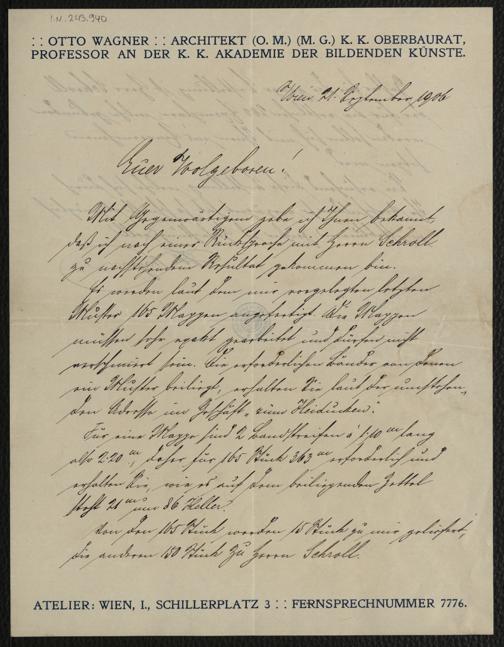 I.N. 213.940
:: OTTO WAGNER :: ARCHITEKT (O. M.) (M. G.) K. K. OBERBAURAT,
PROFESSOR AN DER K. K. AKADEMIE DER BILDENDEN KÜNSTE.
Wien 21. September 1906
Euer Wolgeboren!
Mit Gegenwärtigem gebe ich Ihnen bekannt,
daß ich nach einer Rücksprache mit Herrn Schroll
zu nachstehendem Resultat gekommen bin.
Es werden laut dem mir vorgelegten letzten
Muster 165 Mappen angefertigt. Die Mappen
müssen sehr exakt gearbeitet und dürfen nicht
verschmiert sein. Die erforderlichen Bänder von denen
ein Muster beiliegt, erhalten Sie laut der umstehen-
den Adresse im Geschäft „zum Heiducken“.
Für eine Mappe sind 2 Bandstreifen á 1·10 m lang
also 2·20 m, daher für 165 Stück 363 m erforderlich und
erhalten Sie, wie es auf dem beiliegenden Zettel
steht 21 m um 86 Heller.
Von den 165 Stück werden 15 Stück zu mir geliefert,
die anderen 150 Stück zu Herrn Schroll.
ATELIER: WIEN, I., SCHILLERPLATZ 3 :: FERNSPRECHNUMMER 7776.